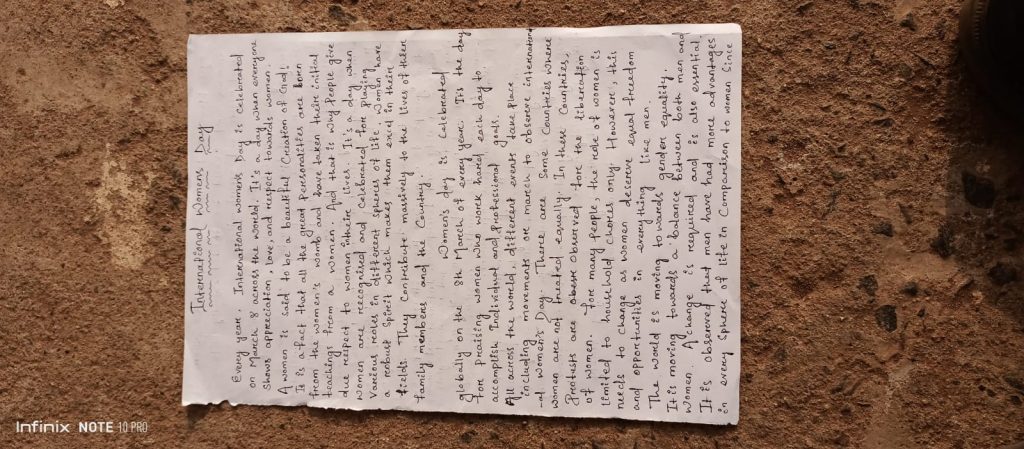 International Womens Day
Every year, International womens Day is celebrated
on March 8 across the world, It's a day when everyone
shows appreciation, love, and respect towards women.
A women is said to be a beautiful Creation of God!
It is a fact that all the great personalities are born
from the women's womb and have taken their initial
teachings from a women. And that is why people give
due respect to women in their lives. It's a day when
women are recognised and celebrated for playing
various roles in different spheres of life. Women have
a robust spirit which makes them excel in their
fields. They contribute massively to the lives of their
family members and the Country.
Women's day is celebrated
globally on the 8th March of every year. It's the day
for praising women who work hard each day to
accomplish Individual and professional goals.
All across the world, different events take place
including movements or march to observe internation
-al women's Day. There are Some Countries where
women are not treated equally. In these Countries,
Protests are observed for the liberation
of women. For many people, the role of women is
limited to household choices only. However, this
needs to change as women deserve equal freedom
and opportunities in everything like men.
The world is moving towards gender equality.
It is moving towards a balance between both men and
women. A change is required and is also essential.
It is observed that men have had more advantages
in every Sphere of life in Comparison to women Since
Infinix NOTE 10 PRO